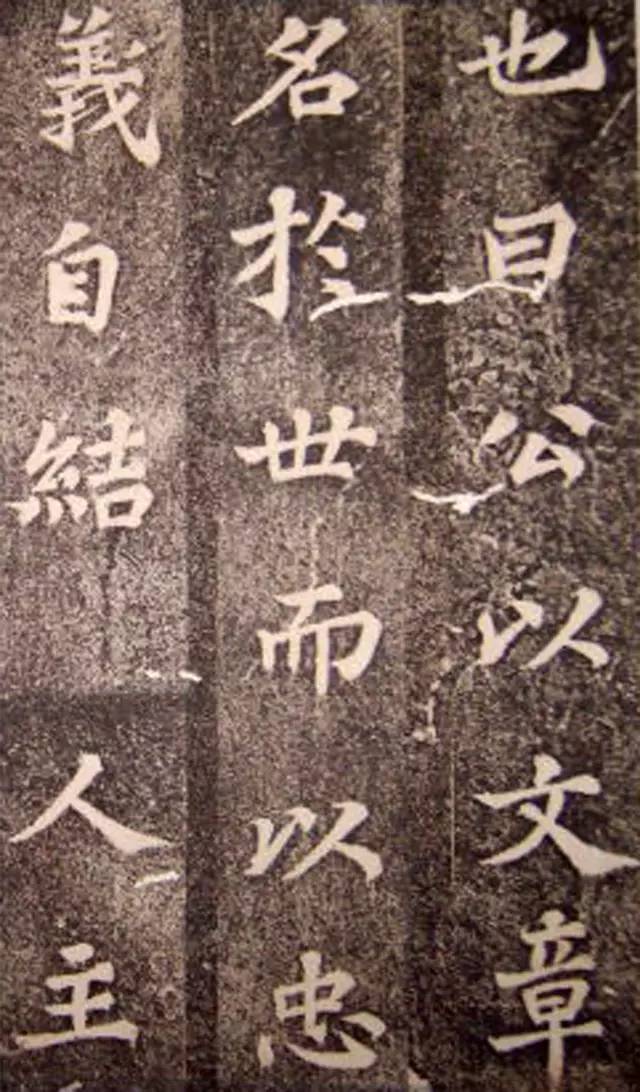 也且公以文章
名於世而以忠
義自結人主